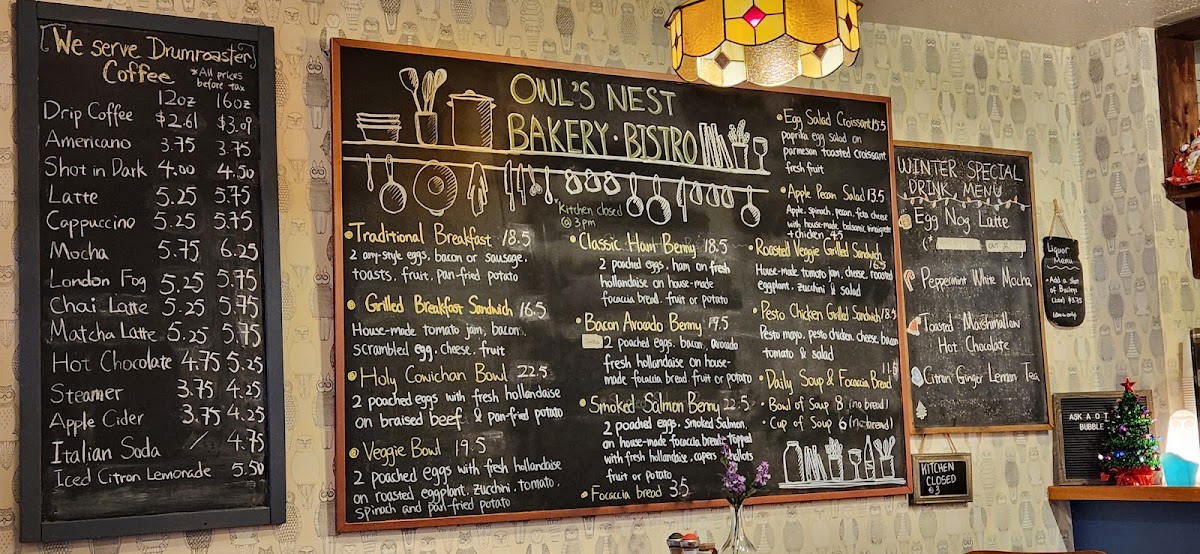 We serve Drumroaster
Coffee
*All prices
before tax
12oz 16oz
Drip Coffee $2.61 $3.09
Americano 3.75 3.75
Shot in Dark 4.00 4.50
Latte 5.25 5.75
Cappuccino 5.25 5.75
Mocha 5.75 6.25
London Fog 5.25 5.75
Chai Latte 5.25 5.75
Matcha Latte 5.25 5.75
Hot Chocolate 4.75 5.25
Steamer 3.75 4.25
Apple Cider 3.75 4.25
Italian Soda / 4.75
Iced Citron Lemonade 5.50
OWL'S NEST
BAKERY · BISTRO
Kitchen closed
@ 3pm
Traditional Breakfast 18.5
2 any-style eggs, bacon or sausage,
toasts, fruit, pan-fried potato
Grilled Breakfast Sandwich 16.5
House-made tomato jam, bacon,
scrambled egg, cheese, fruit
Holy Cowichan Bowl 22.5
2 poached eggs with fresh hollandaise
on braised beef & pan-fried potato
Veggie Bowl 19.5
2 poached eggs with fresh hollandaise
on roasted eggplant, zucchini, tomato,
spinach and pan-fried potato
Classic Ham Benny 18.5
2 poached eggs, ham on fresh
hollandaise on house-made
focaccia bread, fruit or potato
Bacon Avocado Benny 19.5
2 poached eggs, bacon, avocado
fresh hollandaise on house-
made focaccia bread fruit or potato
Smoked Salmon Benny 22.5
2 poached eggs, smoked Salmon,
on house-made focaccia bread, topped
with fresh hollandaise, capers, shallots
fruit or potato
Focaccia bread 3.5
Egg Salad Croissant 13.5
paprika egg salad on
parmesan toasted croissant
fresh fruit
Apple Pecan Salad 13.5
Apple, spinach, pecan, feta cheese
with house-made balsamic vinaigrette
+ chicken 4.5
Roasted Veggie Grilled Sandwich
16.5
House-made tomato jam, cheese, roasted
eggplant, zucchini & salad
Pesto Chicken Grilled Sandwich 18.5
Pesto mayo, pesto chicken, cheese, bacon
tomato & salad
Daily Soup & Focaccia Bread
11.5
Bowl of Soup 8 (no bread)
Cup of Soup 6 (no bread)
WINTER SPECIAL
DRINK MENU
Egg Nog Latte
Peppermint White Mocha
Toasted Marshmallow
Hot Chocolate
Citron Ginger Lemon Tea
Liquor
Menu
Add a Shot
of Baileys
KITCHEN
CLOSED
@3
ASK A
BUBBLE